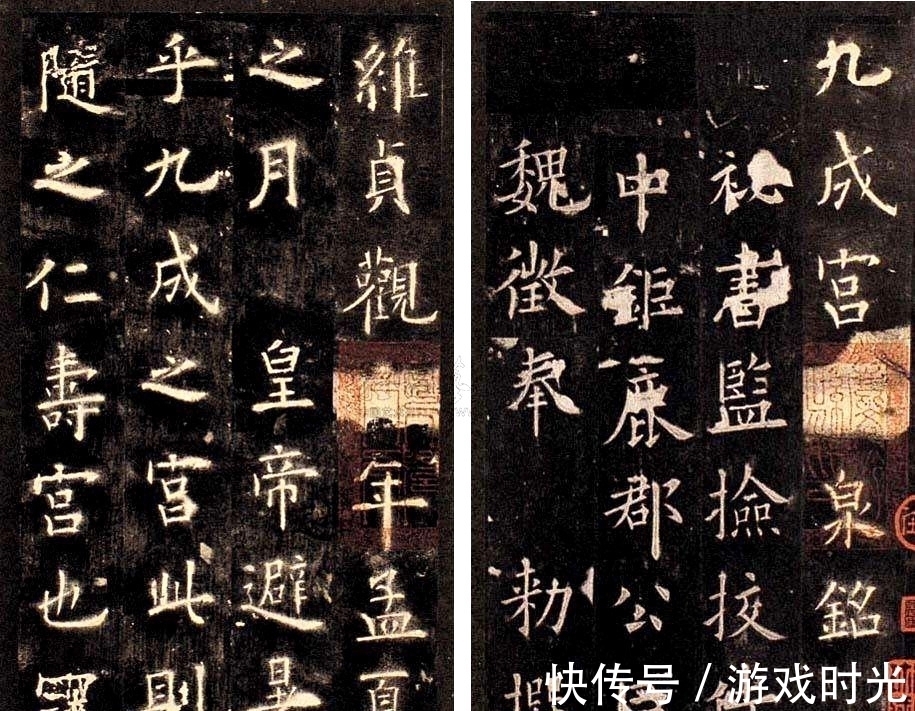 九成宮泉銘
秘書監撿挍
中鉅鹿郡公
魏徵奉勑
維貞觀年孟夏
之月皇帝避暑
乎九成之宮此則
隨之仁壽宮也
快传号 / 游戏时光